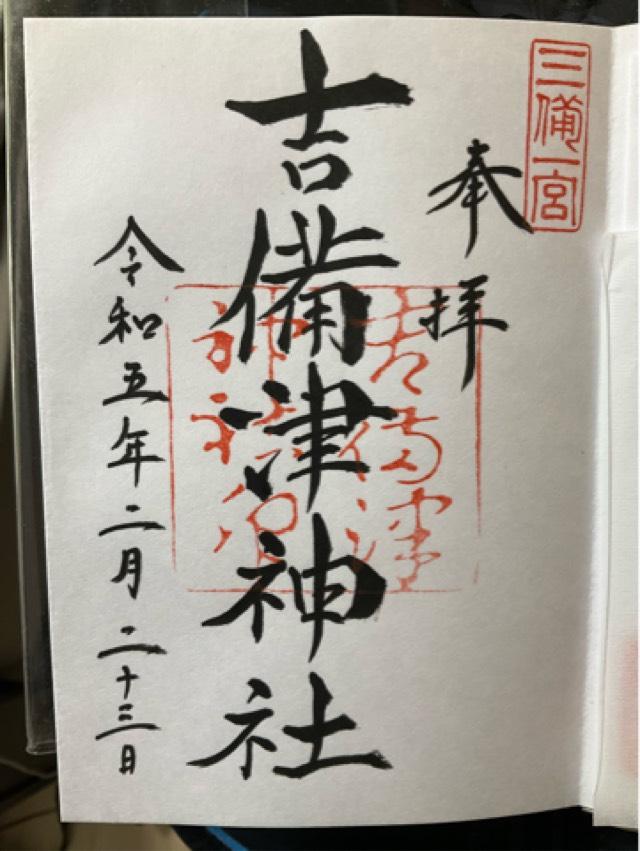 三備一宮
奉拝
吉備津神社
吉備津
神社
令和五年二月二十三日